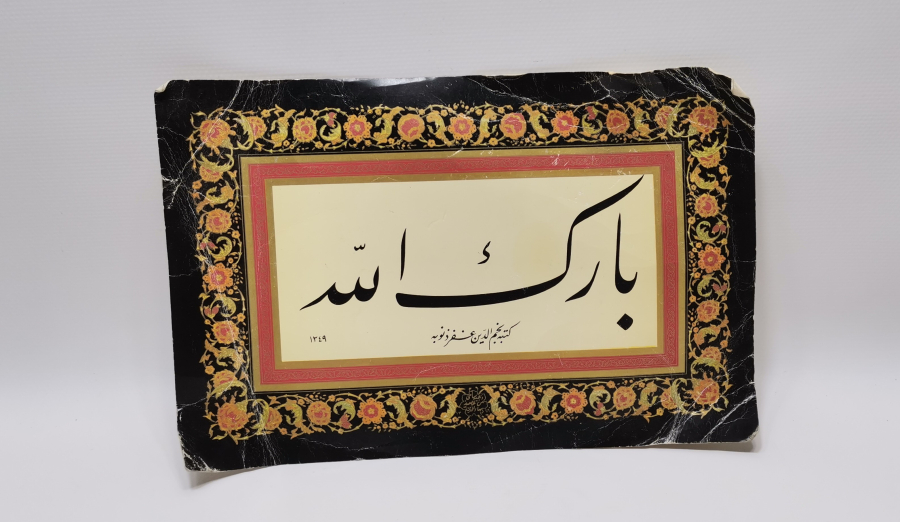 بارك الله
كتبه نجم الدين غفر ذنوبه
١٣٤٩